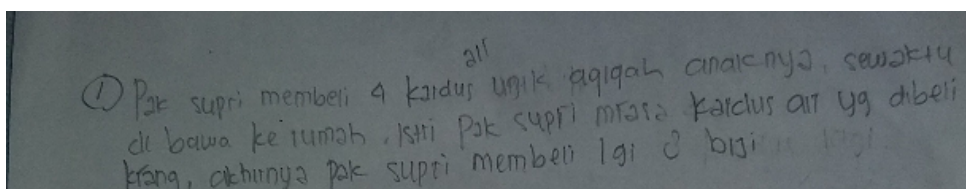 ① Pak supri membeli 4 kardus air untk aqiqah anaknya, sewaktu
di bawa ke rumah, istri Pak supri mrasa kardus air yg dibeli
krang, akhirnya pak supri membeli lgi 3 biji